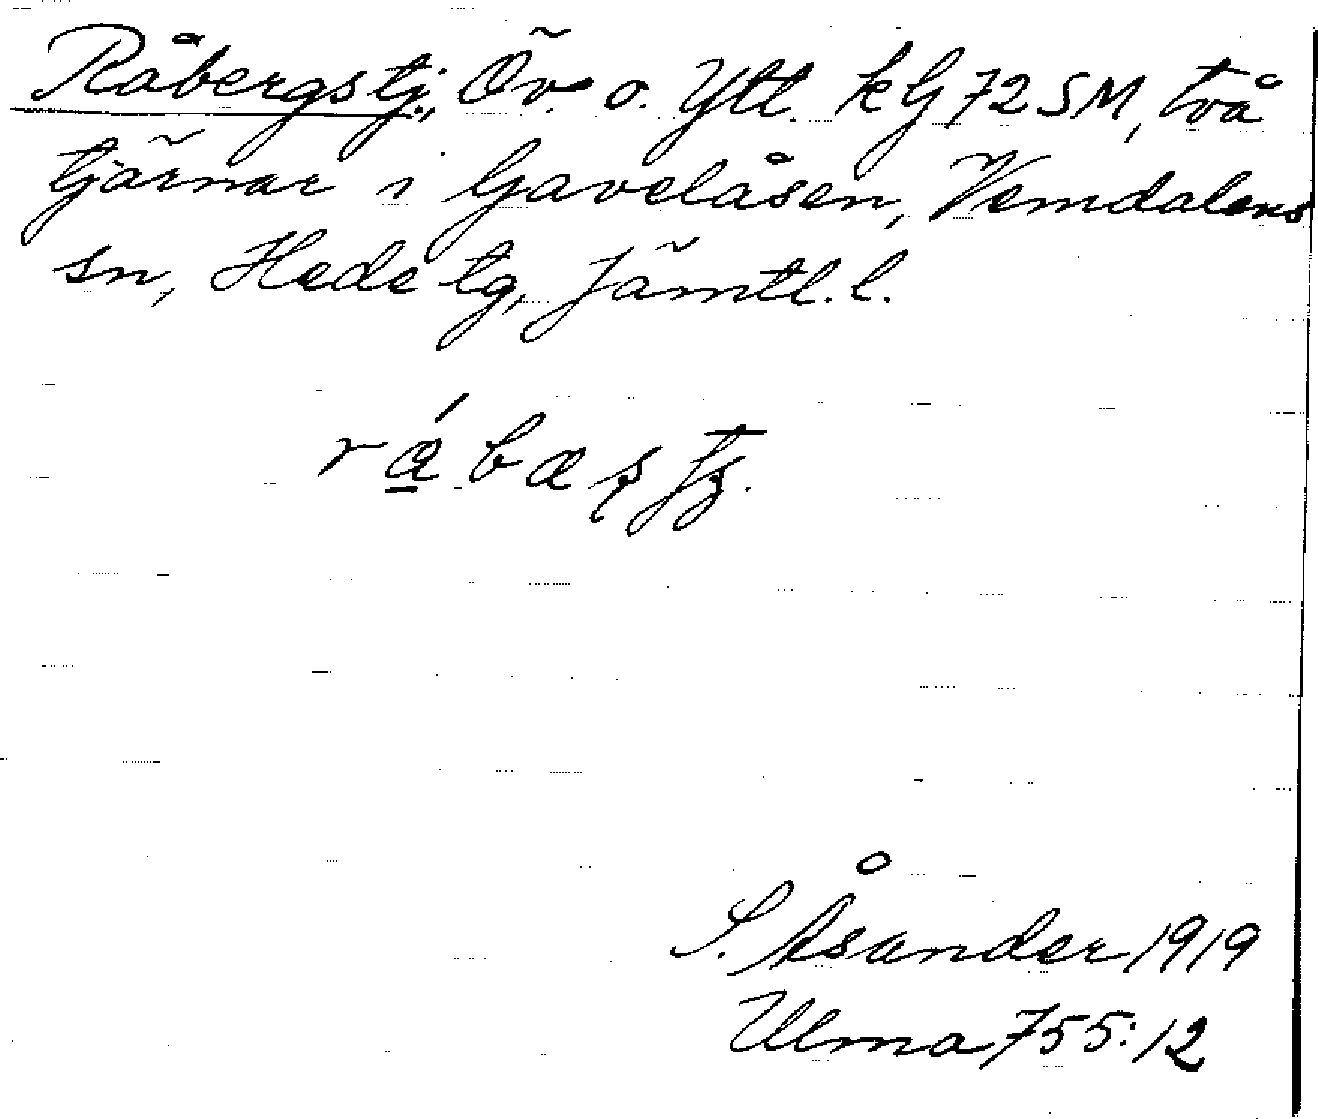 Råbergstj., Öv. o. Ytt. kG 72 SM, två
tjärnar i Gavelåsen, Vemdalens
sn, Hede tg, Jämtl. l.
S. Åsander 1919
Ulma 755:12